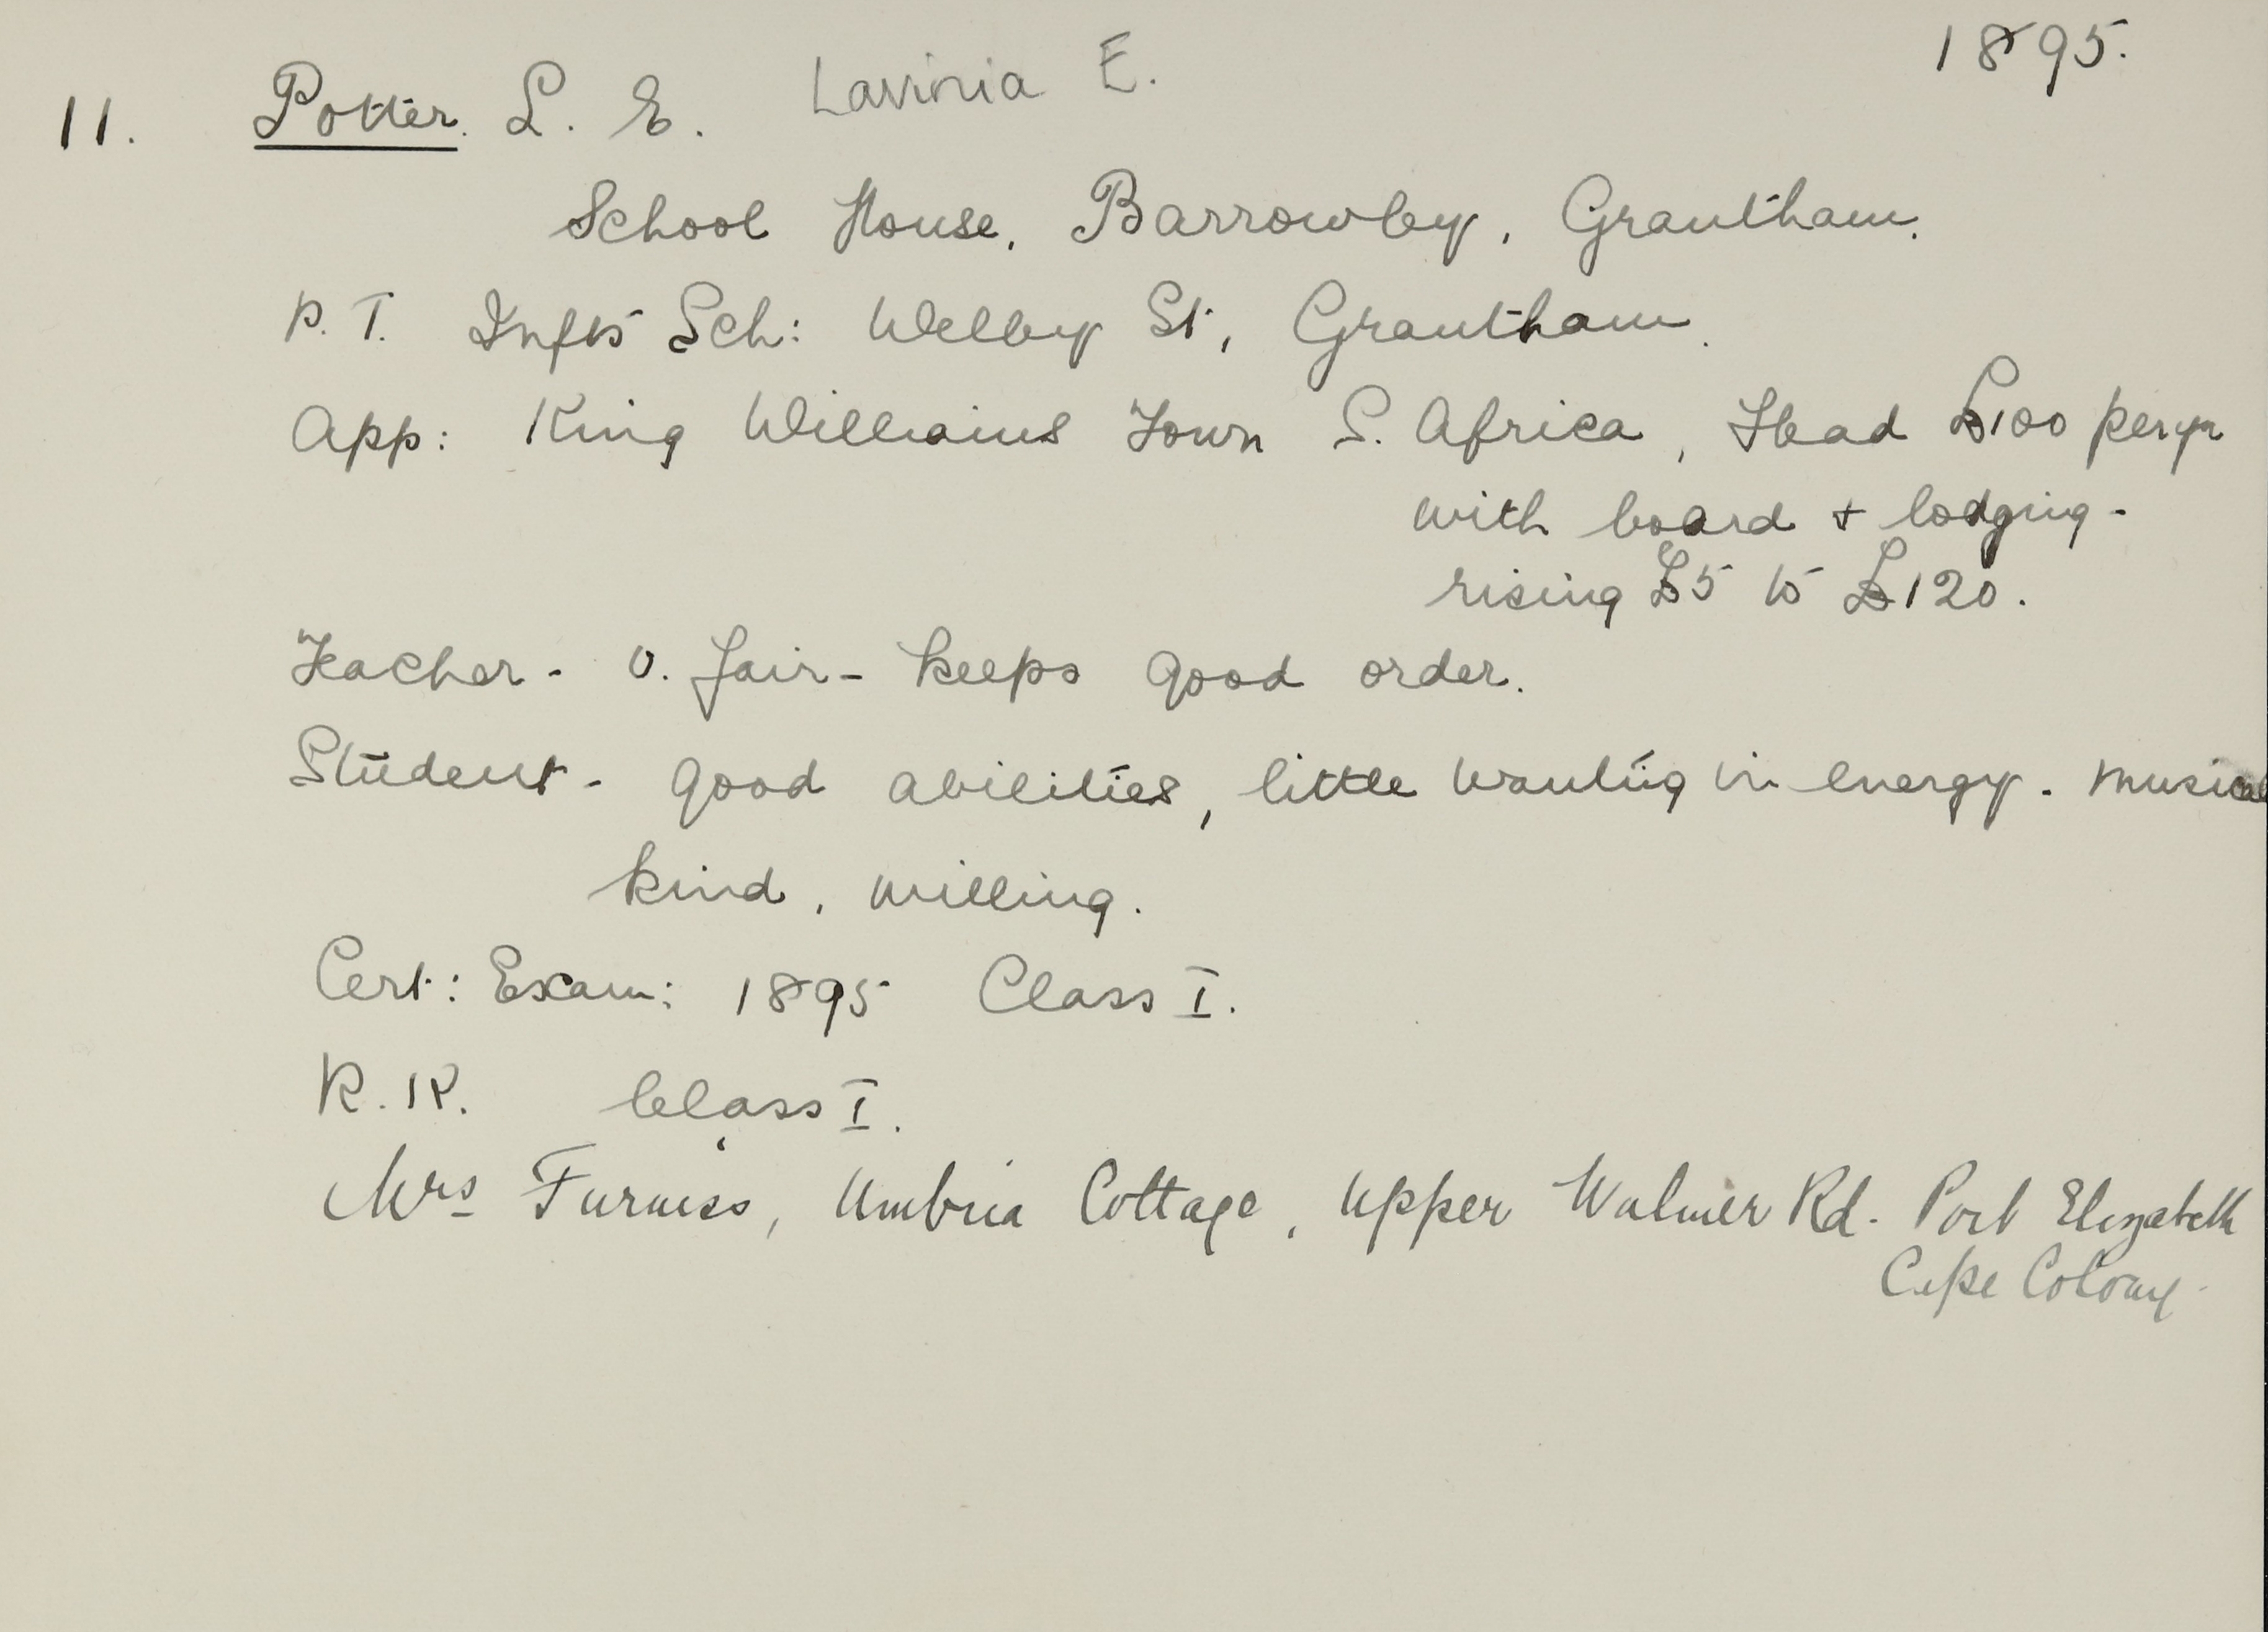 1895.
11. Potter. L. E. Lavinia E.
School House, Barrowby, Grantham.
P. T. Infts Sch: Welby St, Grantham.
App: King Williams Town S. Africa, Head £100 per yr
with board + lodging -
rising £5 to £120.
Teacher - v. fair - keeps good order.
Student - good abilities, little wanting in energy. musical
kind, willing.
Cert: Exam: 1895 Class I.
R. K. Class I.
Mrs Furness, Umbria Cottage, Upper Walmer Rd. Port Elizabeth
Cape Colony.